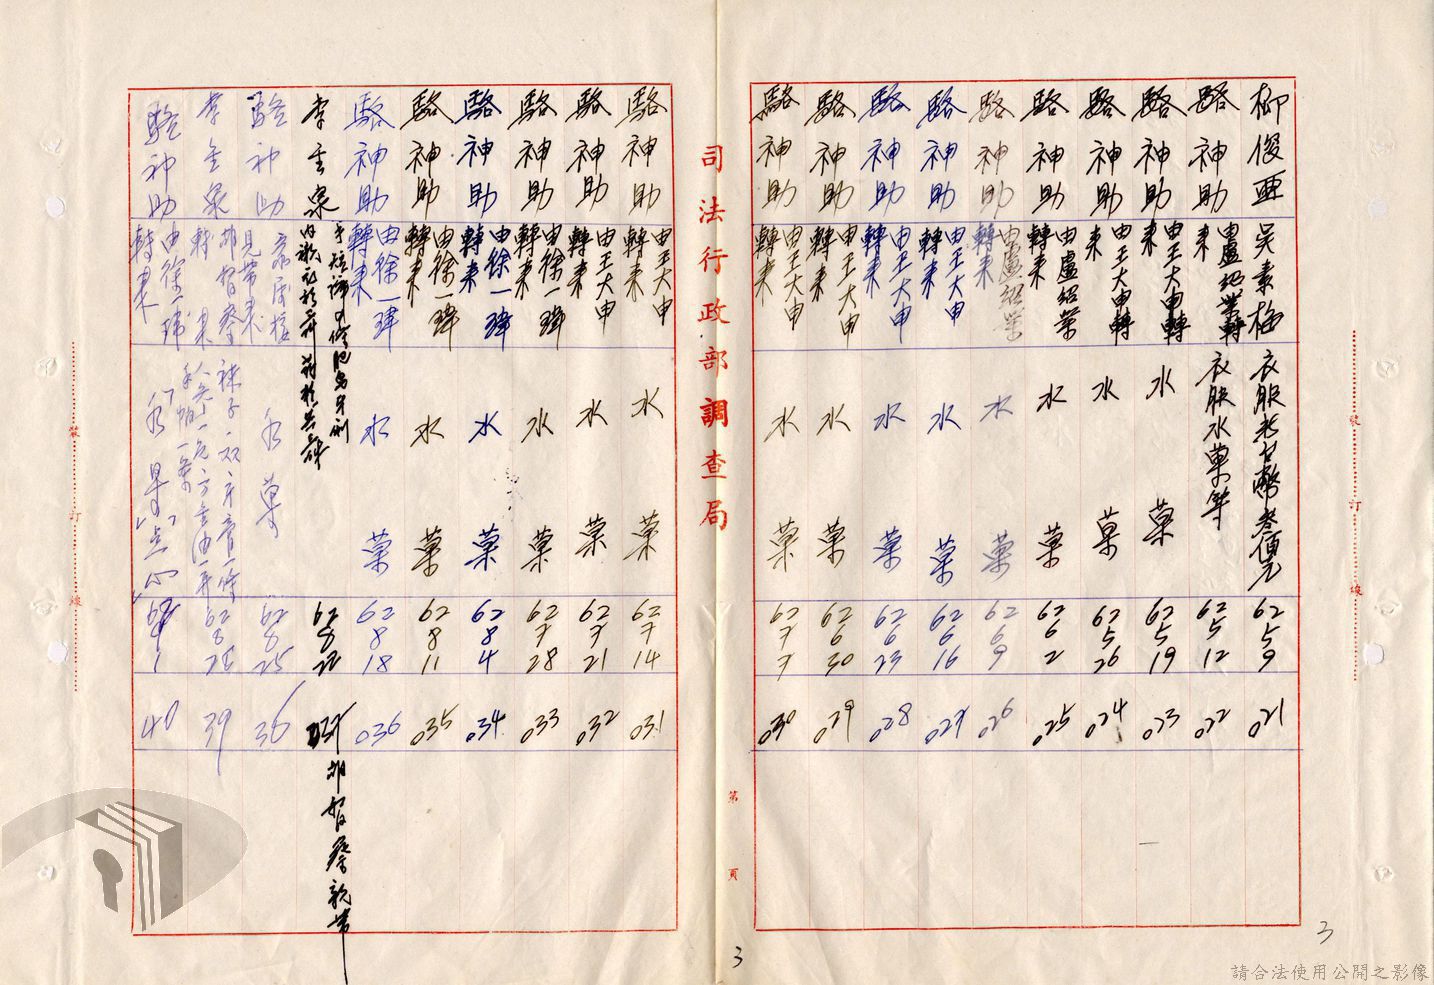 柳俊亜 吳素梅 衣服老台幣叁佰元 62 5 9 021
駱神助 由盧紹業轉來 衣服水菓等 62 5 12 022
駱神助 由王大申轉來 水菓 62 5 19 023
駱神助 由王大申轉來 水菓 62 5 26 024
駱神助 由盧紹業轉來 水菓 62 6 2 025
駱神助 由盧紹業轉來 水菓 62 6 9 026
駱神助 由王大申轉來 水菓 62 6 16 027
駱神助 由王大申轉來 水菓 62 6 23 028
駱神助 由王大申轉來 水菓 62 6 30 029
駱神助 由王大申轉來 水菓 62 7 7 030
司法行政部調查局
第 頁
駱神助 由王大申轉來 水菓 62 7 14 031
駱神助 由王大申轉來 水菓 62 7 21 032
駱神助 由徐一瑋轉來 水菓 62 7 28 033
駱神助 由徐一瑋轉來 水菓 62 8 4 034
駱神助 由徐一瑋轉來 水菓 62 8 11 035
駱神助 由徐一瑋轉來 水菓 62 8 18 036
李金泉 62 8 22 037
駱神助 水菓 62 8 25 36
李金泉 襪子一双 牙膏一條 62 8 39
駱神助 由徐一瑋轉來 水菓 點心 62 1 40
裝 訂 線
裝 訂 線
3
3
請合法使用公開之影像